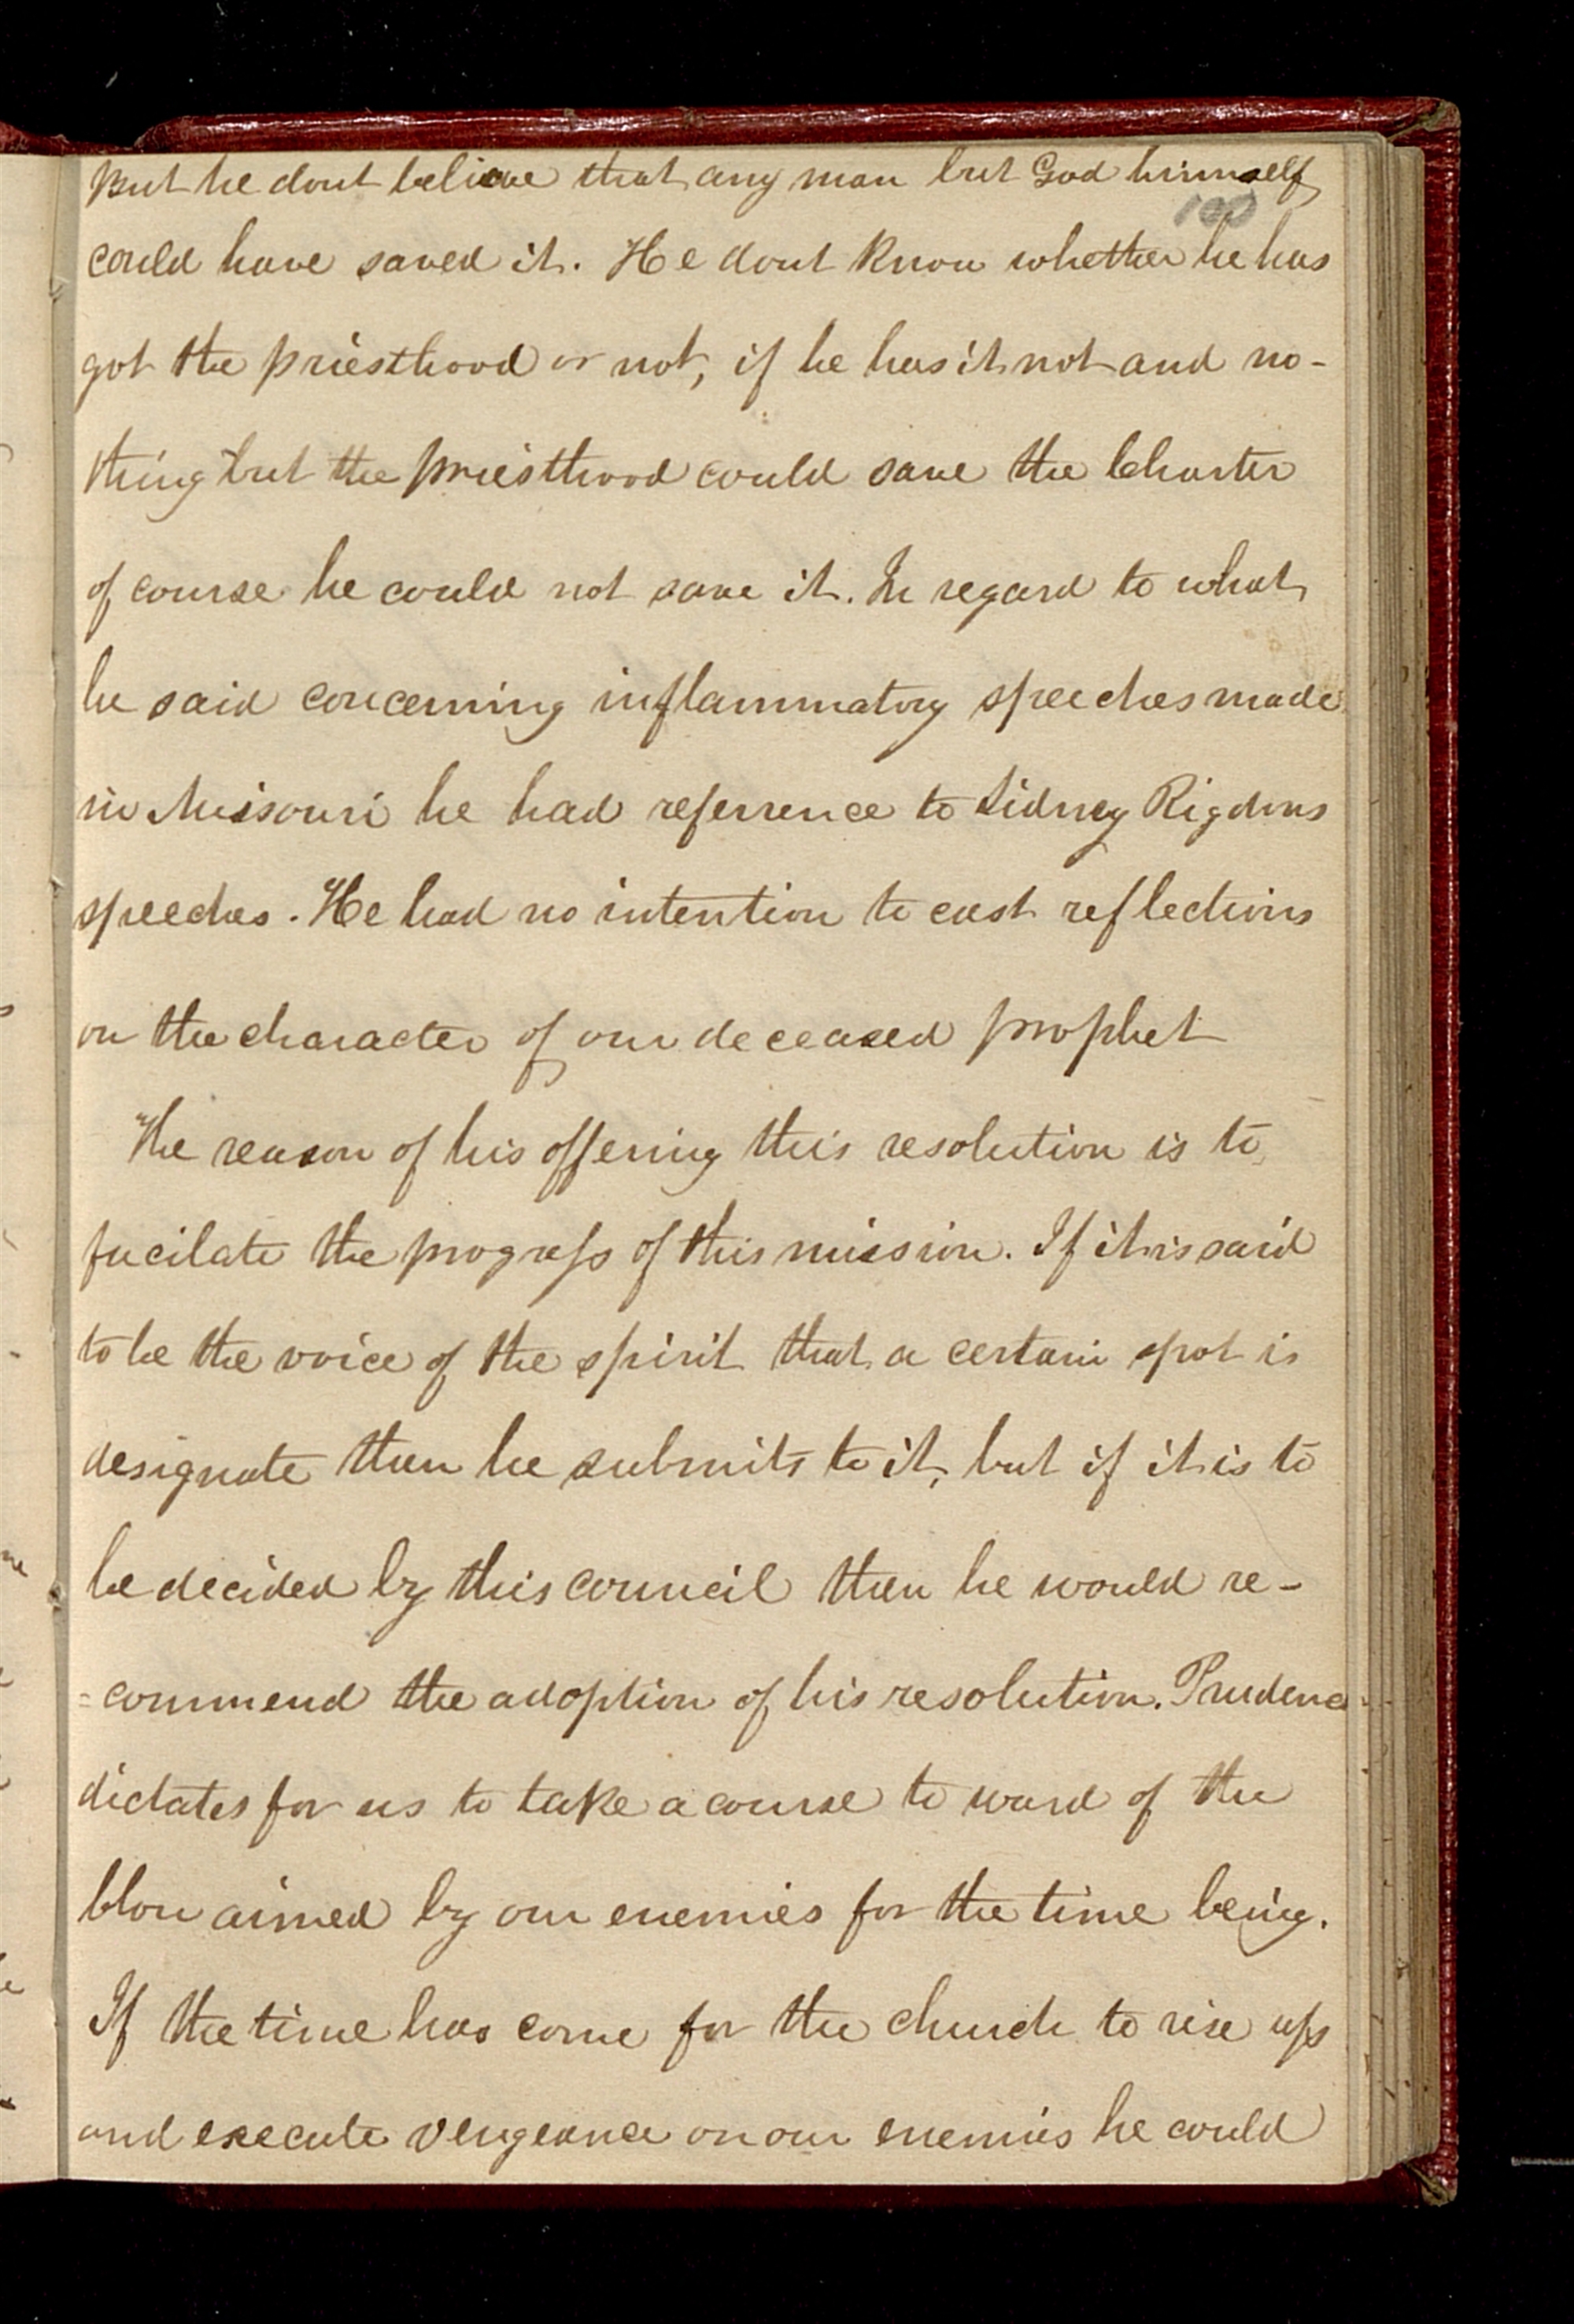 but he dont believe that any man but God himself
100
could have saved it. He dont know whether he has
got the priesthood or not, if he has it not and no-
thing but the priesthood could save the Charter
of course he could not save it. In regard to what
he said concerning inflammatory speeches made
in Missouri he had referrence to Sidney Rigdons
speeches. He had no intention to cast reflections
on the character of our deceased prophet
The reason of his offering this resolution is to
facilate the progress of this mission. If it is said
to be the voice of the spirit that a certain spot is
designate then he submits to it, but if it is to
be decided by this council then he would re-
=commend the adoption of his resolution. Prudence
dictates for us to take a course to ward of the
blow aimed by our enemies for the time being.
If the time has come for the church to rise up
and execute vengeance on our enemies he could